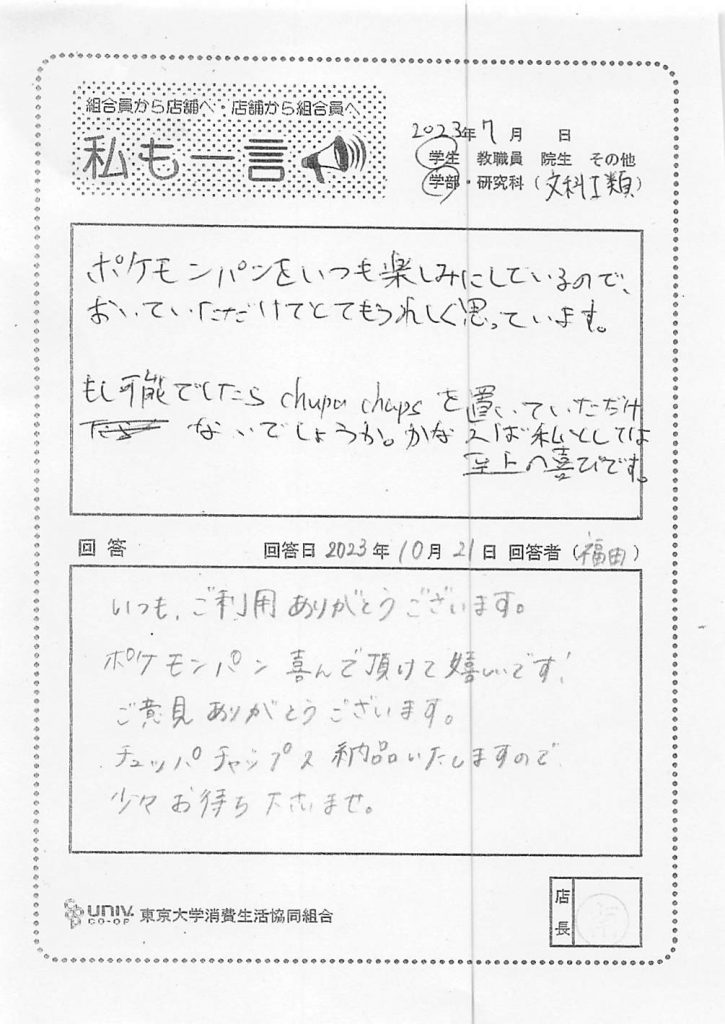 組合員から店舗へ・店舗から組合員へ
私も一言
2023年7月 日
学生 教職員 院生 その他
学部・研究科(文科I類)
ポケモンパンをいつも楽しみにしているので、
おいていただけてとてもうれしく思っています。
もし可能でしたら chupa chups を置いていただけ
ないでしょうか。かなえば私としては
至上の喜びです。
回答 回答日 2023年10月21日 回答者(福田)
いつも、ご利用ありがとうございます。
ポケモンパン喜んで頂けて嬉しいです!
ご意見ありがとうございます。
チュッパチャップス納品いたしますので
少々お待ち下さいませ。
UNIV. CO-OP 東京大学消費生活協同組合
店長